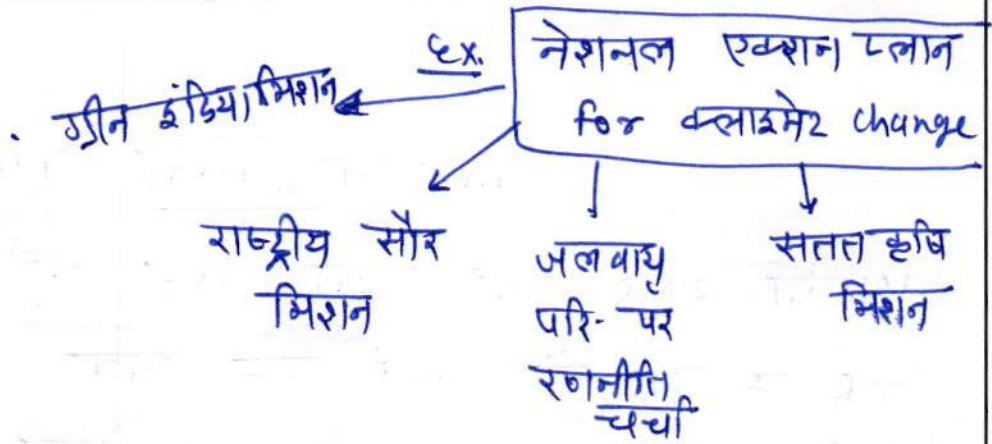 Ex.
नेशनल एक्शन प्लान
for क्लाइमेट change
ग्रीन इंडिया मिशन
राष्ट्रीय सौर
मिशन
जलवायु
परि- पर
रणनीति
चर्चा
सतत कृषि
मिशन